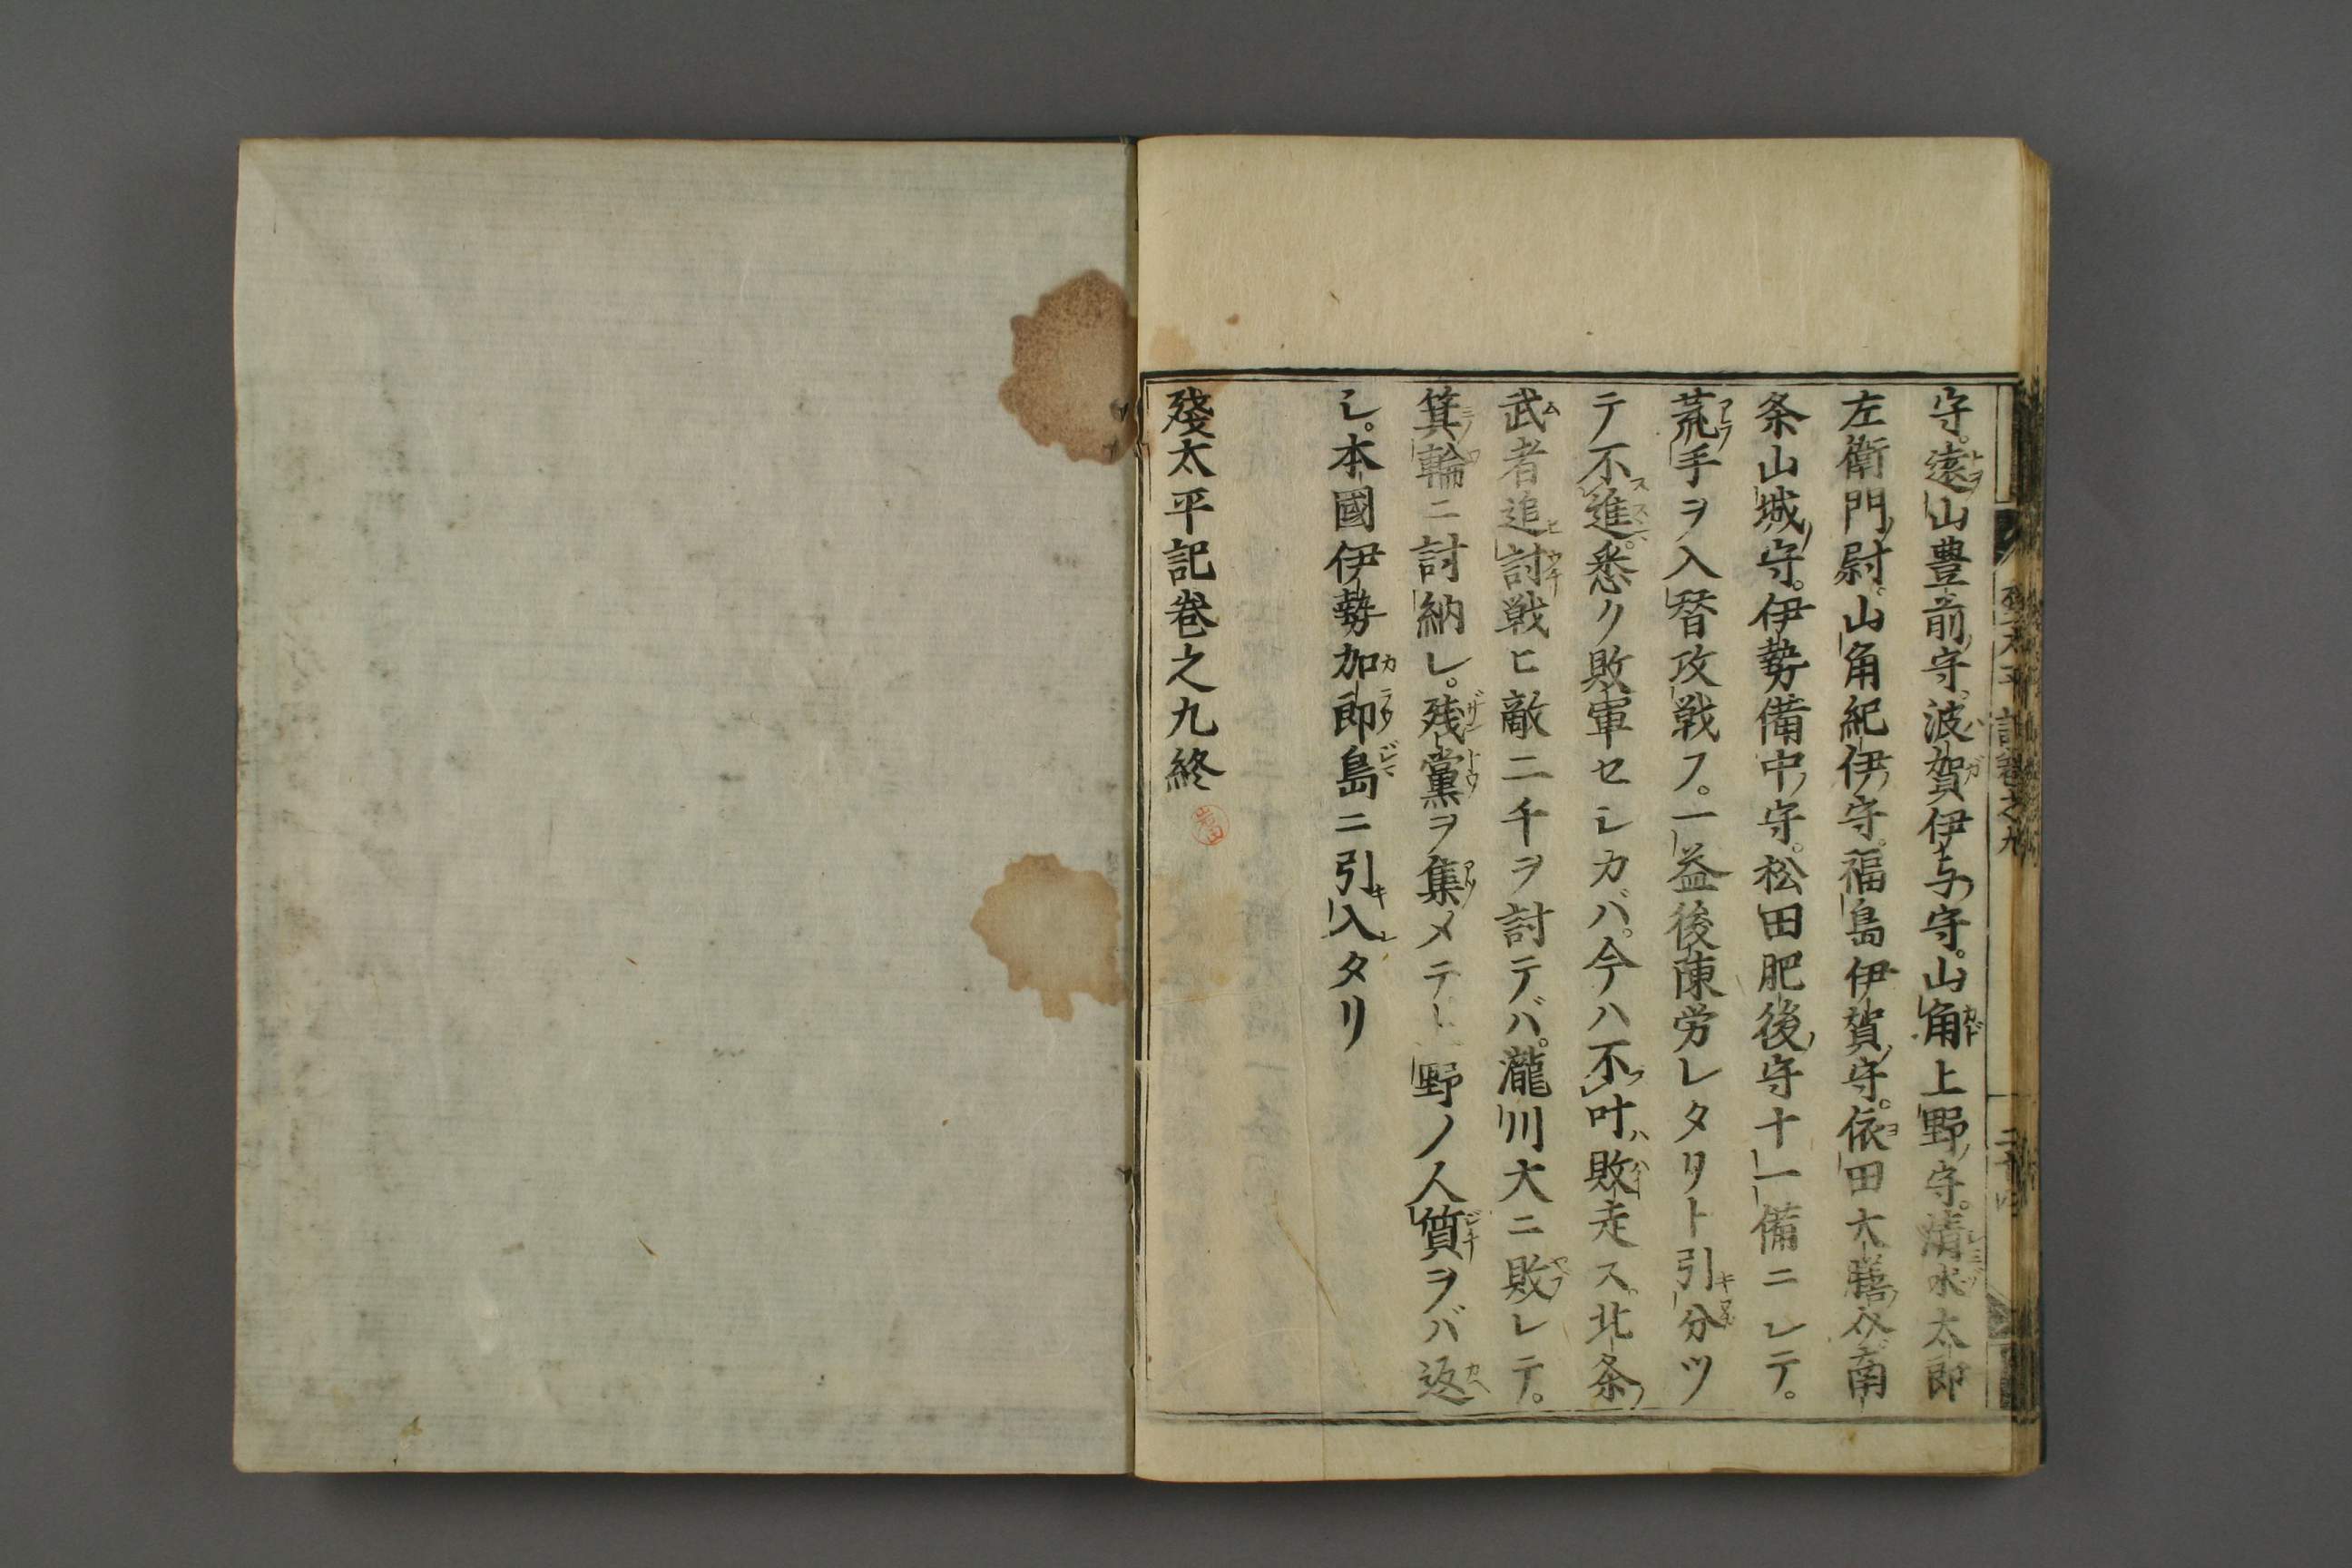 守。遠山豊前守。波賀伊与守。山角上野守。清水太郎
左衛門尉。山角紀伊守。福島伊賀守。依田大膳亮。南
条山城守。伊勢備中守。松田肥後守十一備ニシテ。
荒手ヲ入替攻戦フ。一益後陳労レタリト引分ツ
テ不進。悉ク敗軍セシカバ。今ハ不叶敗走ス。北条
武者追討戦ヒ敵二千ヲ討テバ。瀧川大ニ敗レテ。
箕輪ニ討納レ。残黨ヲ集メテ野ノ人質ヲバ返
シ。本國伊勢加郎島ニ引入タリ
殘太平記巻之九終
殘太平記巻之九